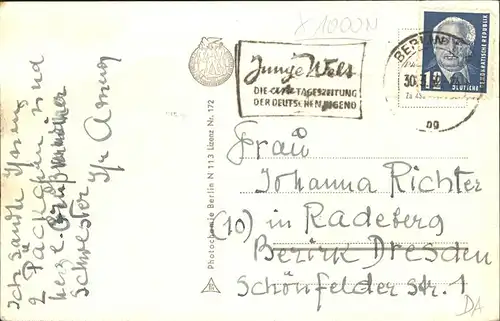 x 1000N
Ich sandte Ihnen
2 Päckchen und
herzl. Grüße
Schwester
Photochemie Berlin N 113 Lizenz Nr. 172
Junge Welt
DIE TAGESZEITUNG
DER DEUTSCHEN JUGEND
BERLIN
30.
DEUTSCHE DEMOKRATISCHE REPUBLIK
Frau
Johanna Richter
(10) in Radeberg
Bezirk Dresden
Schönfelder Str. 1
DA